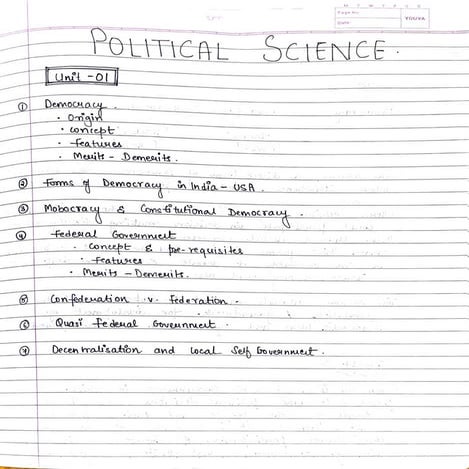 M T W T F S S
Page No.:
Date:
YOUVA
POLITICAL SCIENCE.
Unit -01
① Democracy.
• Origin
• concept
• features
• Merits - Demerits.
② Forms of Democracy in India - USA.
③ Mobocracy & Constitutional Democracy.
④ Federal Government
• Concept & pre-requisites
• Features
• Merits - Demerits.
⑤ Confederation v. Federation.
⑥ Quasi Federal Government.
⑦ Decentralisation and Local Self Government.